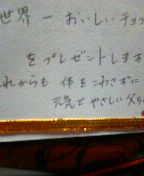 世界一 おいしいチョコ
をプレゼントします
れからも 体をこわさずに
元気でやさしい 父さ